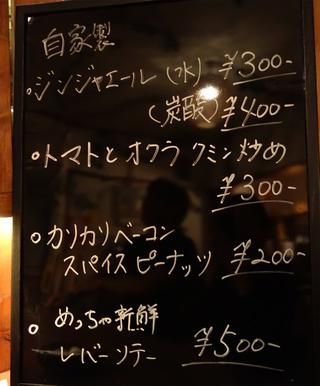 自家製
ジンジャエール(水) ¥300-
(炭酸) ¥400-
トマトとオクラ クミン炒め
¥300-
カリカリベーコン
スパイスピーナッツ ¥200-
めっちゃ新鮮
レバーソテー ¥500-